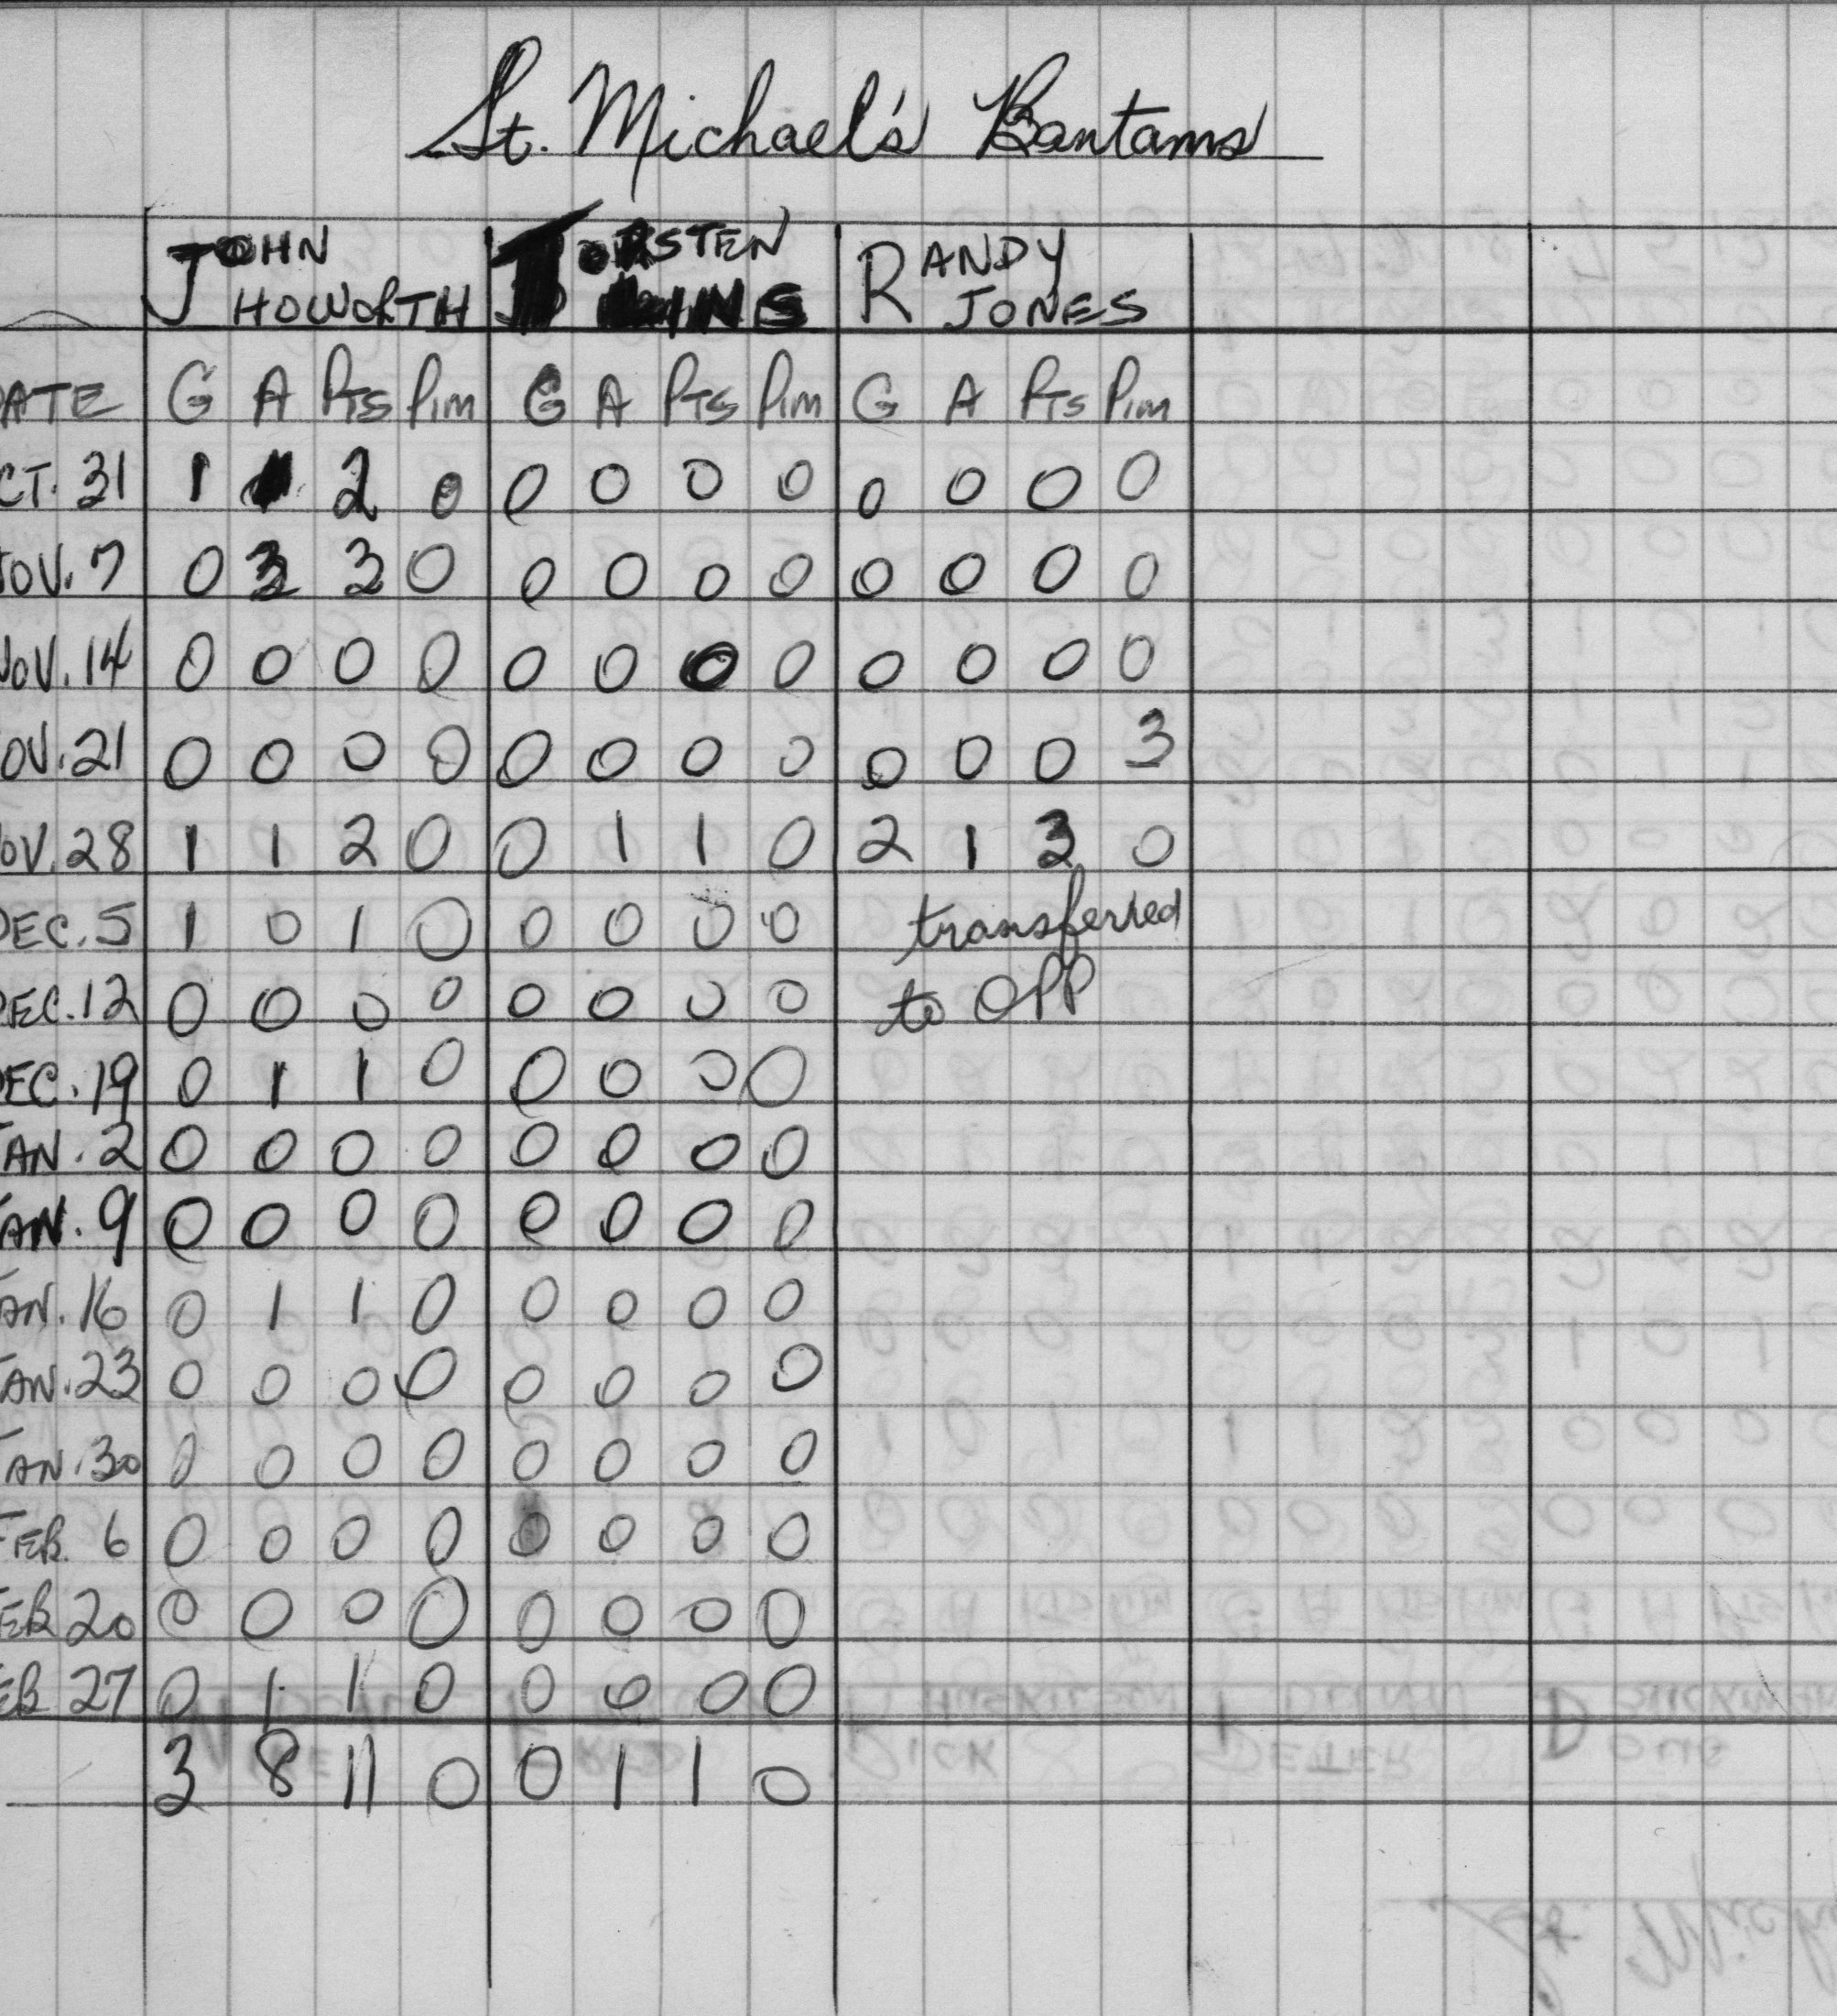 St. Michael's Bantams
JOHN HOWORTH TORSTEN RANDY JONES
ATE G A PTS PIM G A PTS PIM G A PTS PIM
CT. 31 1 1 2 0 0 0 0 0 0 0 0 0
OV. 7 0 3 3 0 0 0 0 0 0 0 0 0
OV. 14 0 0 0 0 0 0 0 0 0 0 0 0
OV. 21 0 0 0 0 0 0 0 0 0 0 0 3
OV. 28 1 1 2 0 0 1 1 0 2 1 3 0
DEC. 5 1 0 1 0 0 0 0 0 transferred
EC. 12 0 0 0 0 0 0 0 0 to OPP
EC. 19 0 1 1 0 0 0 0 0
AN. 2 0 0 0 0 0 0 0 0
AN. 9 0 0 0 0 0 0 0 0
AN. 16 0 1 1 0 0 0 0 0
AN. 23 0 0 0 0 0 0 0 0
AN. 30 0 0 0 0 0 0 0 0
FEB. 6 0 0 0 0 0 0 0 0
EB 20 0 0 0 0 0 0 0 0
EB 27 0 1 1 0 0 0 0 0
3 8 11 0 0 1 1 0